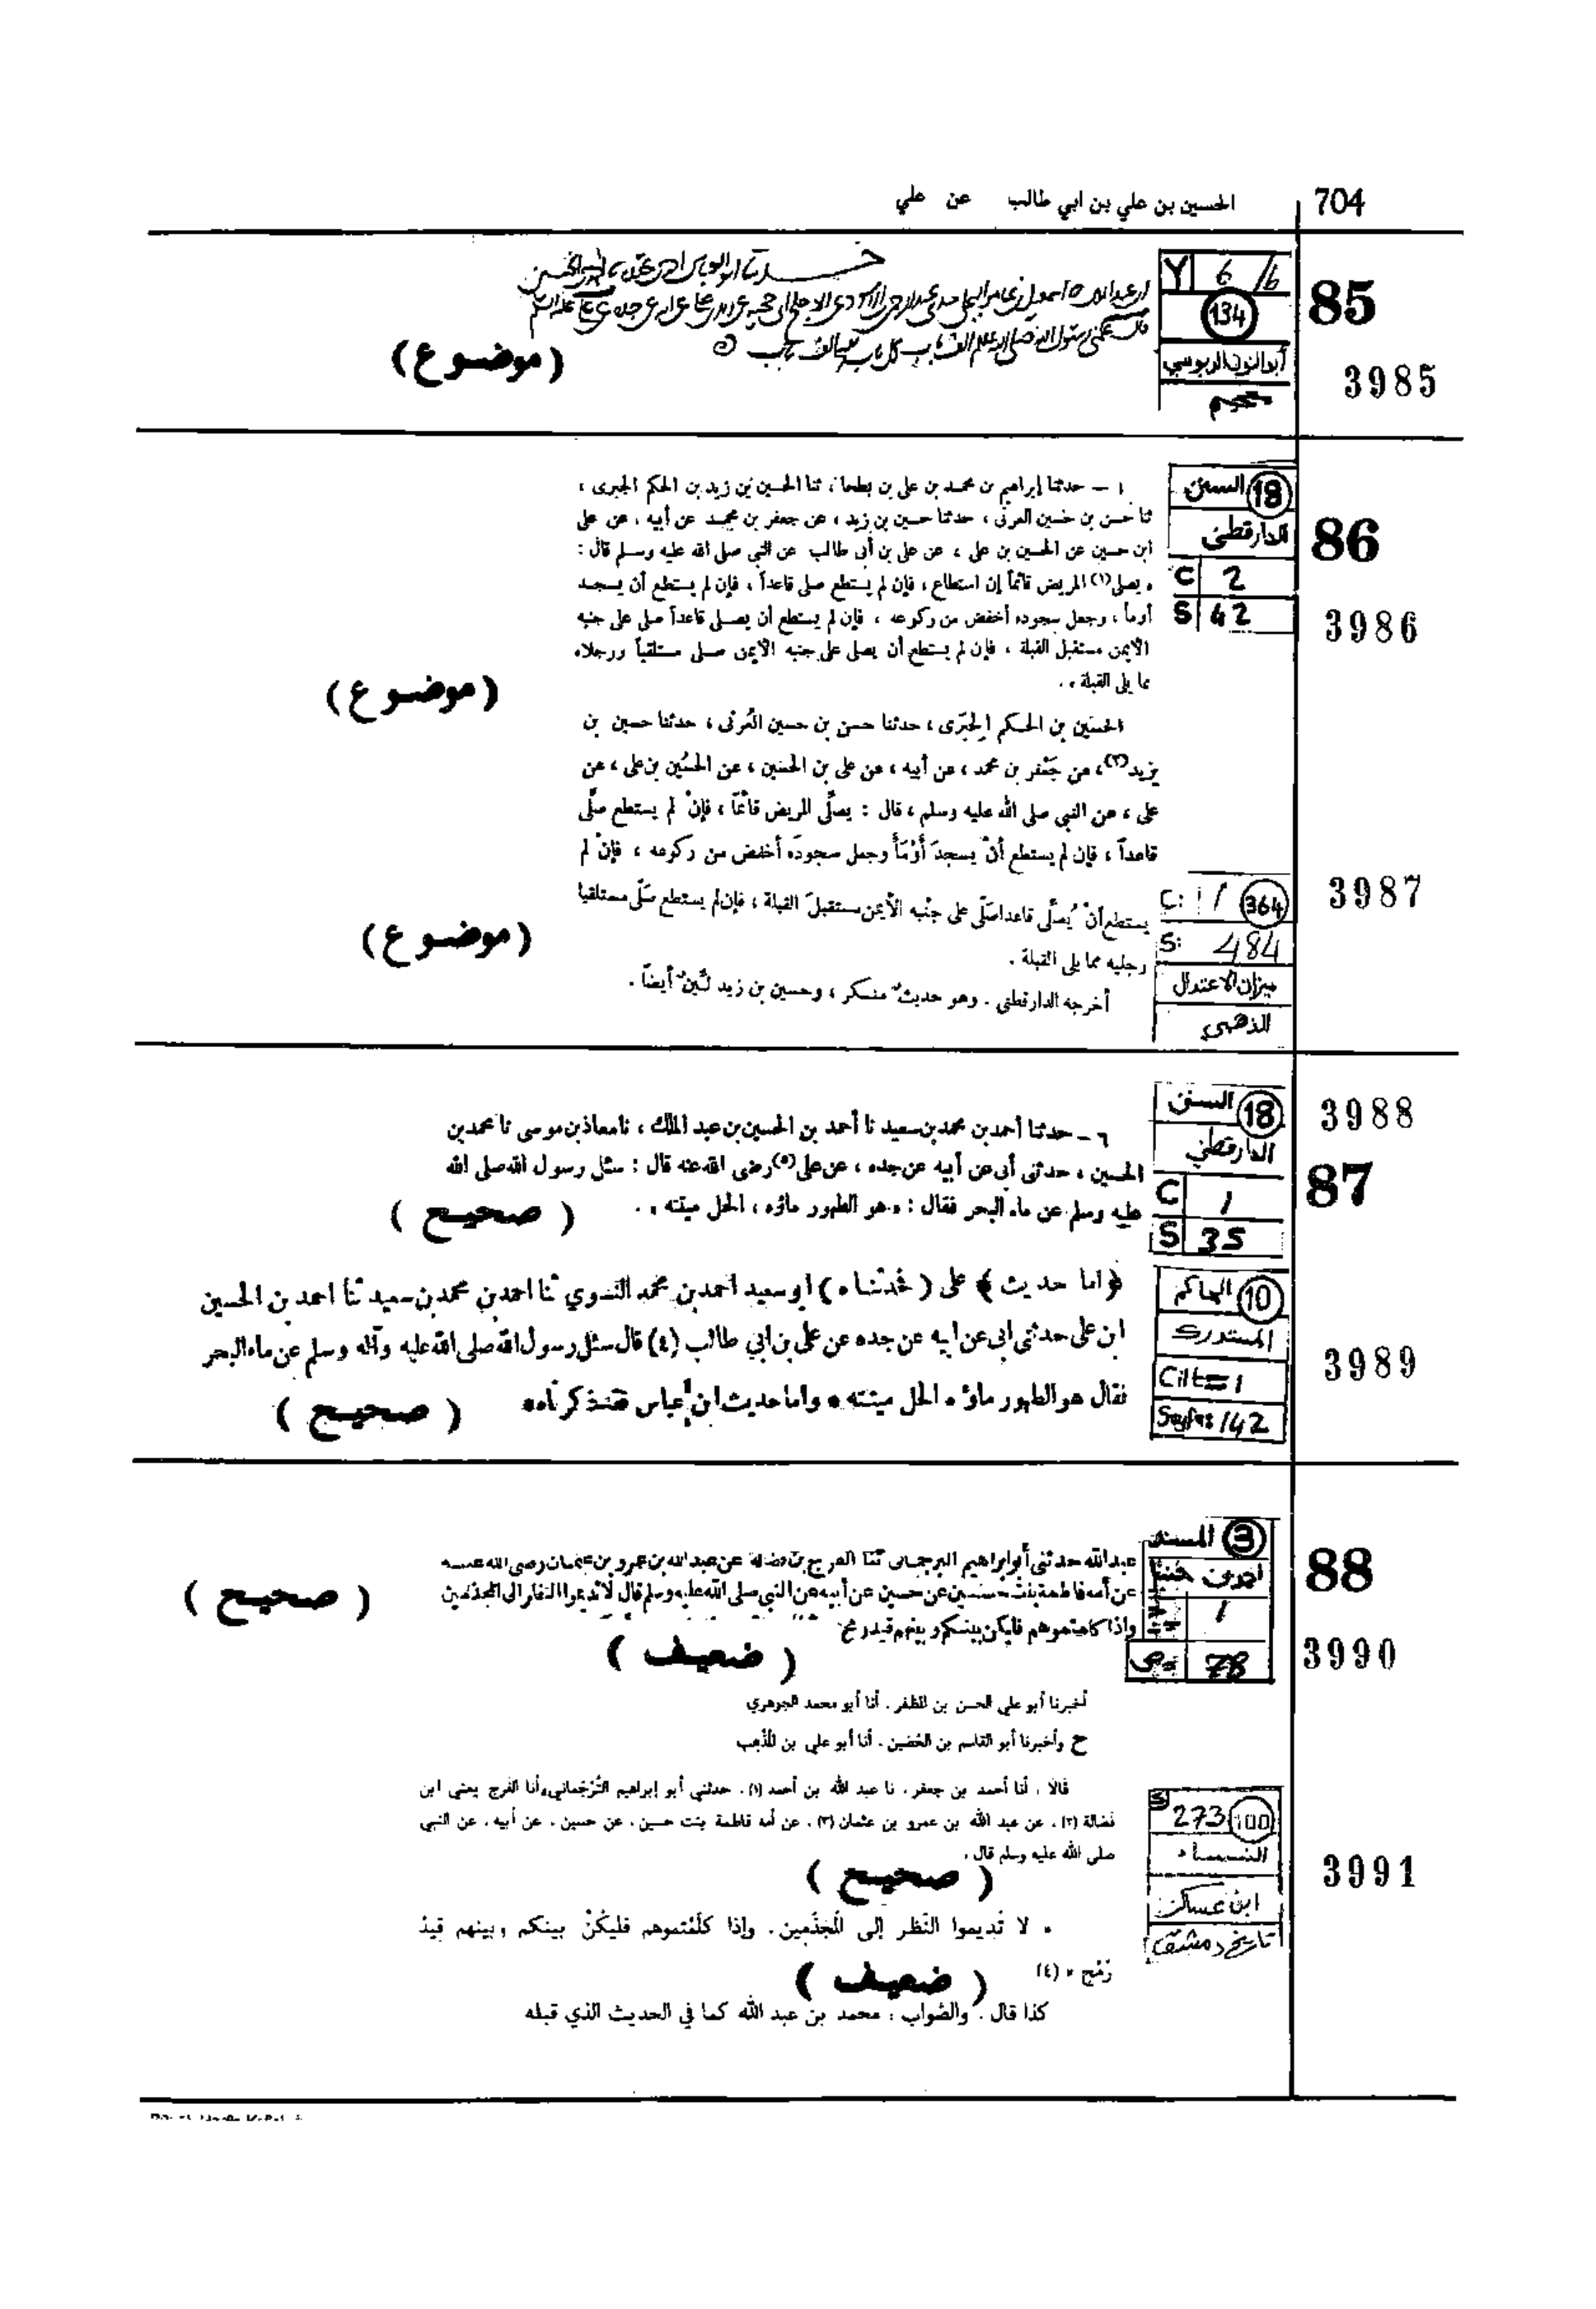 704
الحسين بن علي بن ابي طالب عن علي
85
Y 6/b
134
3985
(موضوع)
86
18 السنن
الدارقطني
C 2
S 42
3986
١ – حدثنا إبراهيم بن محمد بن على بن بطحا، ثنا الحسين بن زيد بن الحكم الجبرى ،
ثنا حسن بن حسين العرنى ، حدثنا حسين بن زيد ، عن جعفر بن محمد عن أبيه ، عن على
ابن حسين عن الحسين بن على ، عن على بن أبى طالب عن النبي صلى الله عليه وسلم قال :
« يصلى (١) المريض قائماً إن استطاع ، فإن لم يستطع صلى قاعداً ، فإن لم يستطع أن يسجد
أومأ ، وجعل سجوده أخفض من ركوعه ، فإن لم يستطع أن يصلى قاعداً صلى على جنبه
الأيمن مستقبل القبلة ، فإن لم يستطع أن يصلى على جنبه الأيمن صلى مستلقياً ورجلاه
مما يلى القبلة » .
(موضوع)
الحسَين بن الحسكم الحِبَرى ، حدثنا حسن بن حسين العُرنى ، حدثنا حسين بن
يزيد (٢)، عن جَعْفر بن محمد ، عن أبيه ، عن على بن الحسين ، عن الحسُين بن على ، عن
على ، عن النبي صلى الله عليه وسلم ، قال : يصلِّى المريض قائمًا ، فإنْ لم يستطع صلَّى
قاعداً ، فإن لم يستطع أنْ يسجدَ أَوْمَأَ وجعل سجودَه أخفض من ركوعه ، فإنْ لم
يستطع أنْ يُصلِّى قاعدا صَلّى على جنْبه الأيمن مستقبلَ القبلة ، فإن لم يستطع صَلّى مستلقيا
رجليه مما يلى القبلة .
أخرجه الدارقطنى . وهو حديثٌ منكر ، وحسين بن زيد لَيِّنٌ أيضاً .
(موضوع)
3987
C: 1 364
S: 484
ميزان الاعتدال
الذهبي
3988
18 السنن
الدارقطني
C 1
S 35
87
٦ – حدثنا أحمد بن محمد بن سعيد نا أحمد بن الحسين بن عبد الملك ، نا معاذ بن موسى نا محمد بن
الحسين ، حدثنى أبى عن أبيه عن جده ، عن على (٥) رضى الله عنه قال : سئل رسول الله صلى الله
عليه وسلم عن ماء البحر فقال : « هو الطهور ماؤه ، الحل ميتته » .
(صحيح)
10 الحاكم
المستدرك
Cilt=1
Sayfa: 142
3989
﴿ اما حديث ﴾ على ( فحدثناه ) ابو سعيد احمد بن محمد النسوي ثنا احمد بن محمد بن سعيد ثنا احمد بن الحسين
ابن على حدثنى ابى عن ابيه عن جده عن على بن ابي طالب (٤) قال سئل رسول الله صلى الله عليه وآله وسلم عن ماء البحر
فقال هو الطهور ماؤه الحل ميتته • واما حديث ابن عباس فقد ذكرناه •
(صحيح)
3 المسند
أحمد بن حنبل
1
ص= 78
88
3990
عبد الله حدثنى أبو ابراهيم الترجمانى ثنا الفرج بن فضالة عن عبد الله بن عمرو بن عثمان رضى الله عنه
عن أمه فاطمة بنت حسين عن حسين عن أبيه عن النبي صلى الله عليه وسلم قال لا تديموا النظر الى المجذمين
واذا كلمتموهم فليكن بينكم وبينهم قيد رمح
(صحيح)
(ضعيف)
أخبرنا أبو علي الحسن بن المظفر . أنا أبو محمد الجوهري
ح وأخبرنا أبو القاسم بن الحُصَين . أنا أبو علي بن المُذْهِب
قالا ، أنا أحمد بن جعفر . نا عبد الله بن أحمد (١) . حدثني أبو إبراهيم التُرْجُماني، أنا الفرج يعني ابن
فَضالة (٢) . عن عبد الله بن عمرو بن عثمان (٣) . عن أمه فاطمة بنت حسين . عن حسين . عن أبيه . عن النبي
صلى الله عليه وسلم قال .
(صحيح)
S 273 100
النساء
ابن عساكر
تاريخ دمشق
3991
« لا تُديموا النَّظر إلى المُجَذَّمين . وإذا كلّمتموهم فليكُنْ بينكم وبينهم قِيدُ
رُمْح » (٤)
(ضعيف)
كذا قال . والصّواب : محمد بن عبد الله كما في الحديث الذي قبله